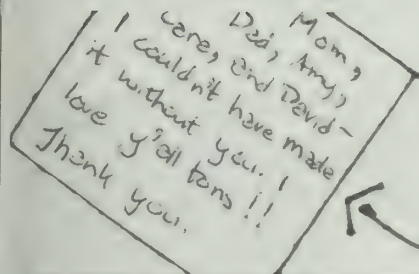 Mom,
Dad, Amy,
Cara, and David-
I couldn't have made
it without you. I
love y'all tons!!
Thank you.